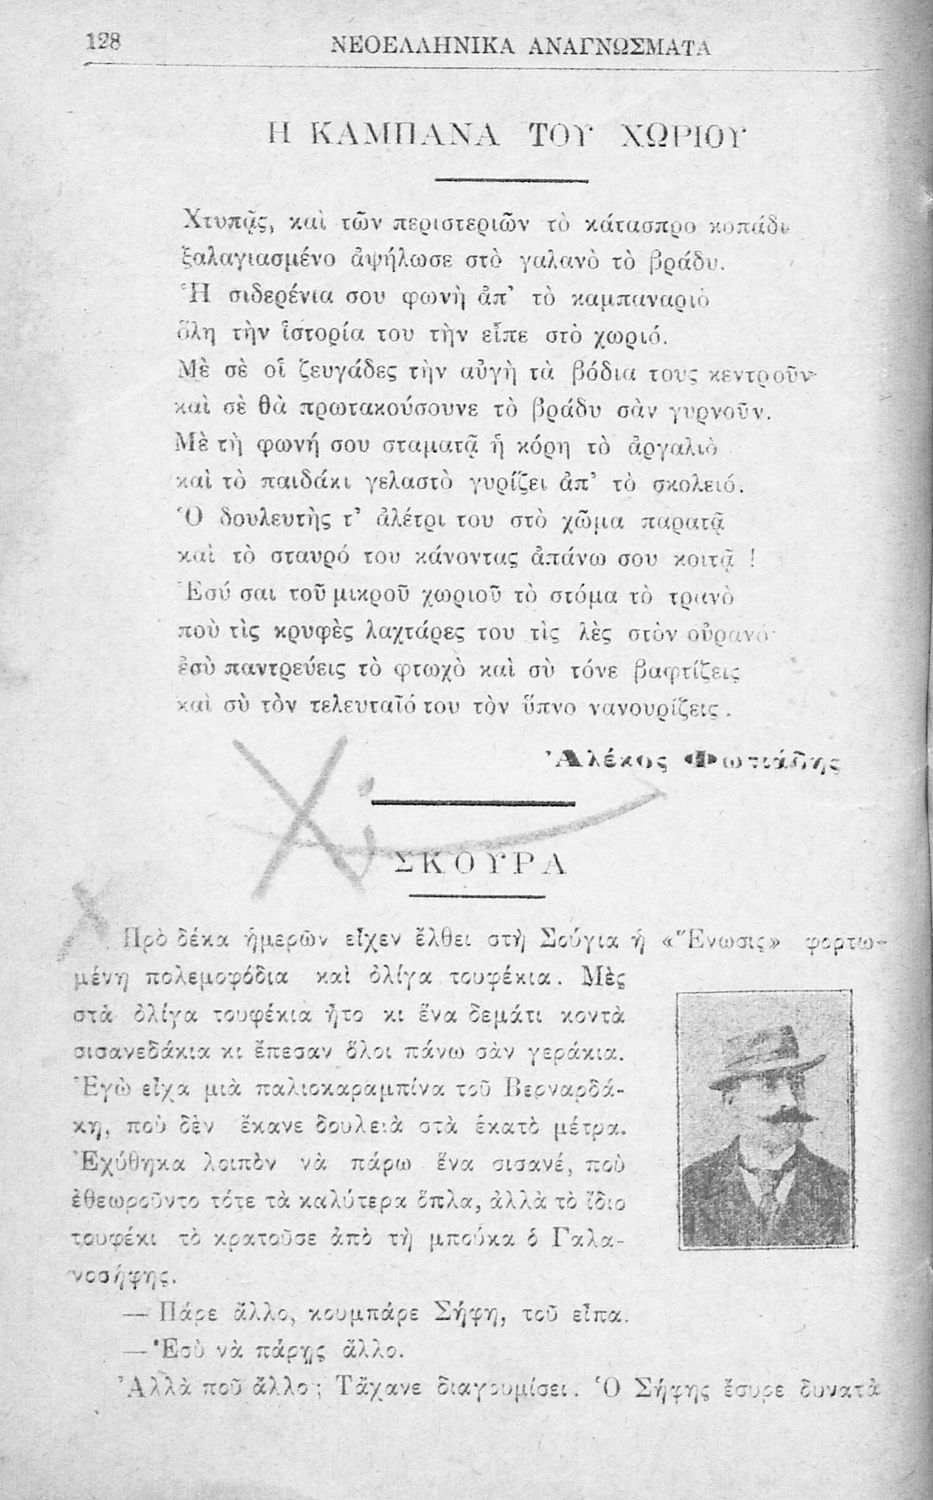 128
ΝΕΟΕΛΛΗΝΙΚΑ ΑΝΑΓΝΩΣΜΑΤΑ
Η ΚΑΜΠΑΝΑ ΤΟΥ ΧΩΡΙΟΥ
Χτυπᾷς, καὶ τῶν περιστεριῶν τὸ κάτασπρο κοπάδι
ξαλαγιασμένο ἀψήλωσε στὸ γαλανὸ τὸ βράδυ.
Ἡ σιδερένια σου φωνὴ ἀπ’ τὸ καμπαναριὸ
ὅλη τὴν ἱστορία του τὴν εἶπε στὸ χωριό.
Μὲ σὲ οἱ ζευγάδες τὴν αὐγὴ τὰ βόδια τους κεντροῦν
καὶ σὲ θὰ πρωτακούσουνε τὸ βράδυ σὰν γυρνοῦν.
Μὲ τὴ φωνή σου σταματᾷ ἡ κόρη τὸ ἀργαλιὸ
καὶ τὸ παιδάκι γελαστὸ γυρίζει ἀπ’ τὸ σκολειό.
Ὁ δουλευτὴς τ’ ἀλέτρι του στὸ χῶμα παρατᾷ
καὶ τὸ σταυρό του κάνοντας ἀπάνω σου κοιτᾷ !
Ἐσύ σαι τοῦ μικροῦ χωριοῦ τὸ στόμα τὸ τρανὸ
ποὺ τὶς κρυφὲς λαχτάρες του τὶς λὲς στὸν οὐρανό·
ἐσὺ παντρεύεις τὸ φτωχὸ καὶ σὺ τόνε βαφτίζεις
καὶ σὺ τὸν τελευταῖό του τὸν ὕπνο νανουρίζεις.
Ἀλέκος Φωτιάδης
ΣΚΟΥΡΑ
Πρὸ δέκα ἡμερῶν εἶχεν ἔλθει στὴ Σούγια ἡ «Ἕνωσις» φορτω-
μένη πολεμοφόδια καὶ ὀλίγα τουφέκια. Μὲς
στὰ ὀλίγα τουφέκια ἦτο κι ἕνα δεμάτι κοντὰ
σισανεδάκια κι ἔπεσαν ὅλοι πάνω σὰν γεράκια.
Ἐγὼ εἶχα μιὰ παλιοκαραμπίνα τοῦ Βερναρδά-
κη, ποὺ δὲν ἔκανε δουλειὰ στὰ ἑκατὸ μέτρα.
Ἐχύθηκα λοιπὸν νὰ πάρω ἕνα σισανέ, ποὺ
ἐθεωροῦντο τότε τὰ καλύτερα ὅπλα, ἀλλὰ τὸ ἴδιο
τουφέκι τὸ κρατοῦσε ἀπὸ τὴ μπούκα ὁ Γαλα-
νοσήφης.
— Πάρε ἄλλο, κουμπάρε Σήφη, τοῦ εἶπα.
— Ἐσὺ νὰ πάρῃς ἄλλο.
Ἀλλὰ ποῦ ἄλλο ; Τἄχανε διαγουμίσει. Ὁ Σήφης ἔσυρε δυνατὰ